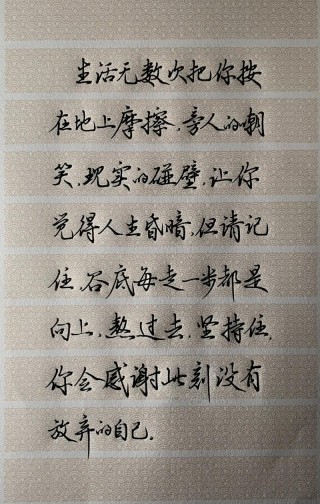 生活无数次把你按
在地上摩擦,旁人的朝
笑,现实的碰壁,让你
觉得人生昏暗,但请记
住,谷底每走一步都是
向上,熬过去,坚持住,
你会感谢此刻没有
放弃的自己。